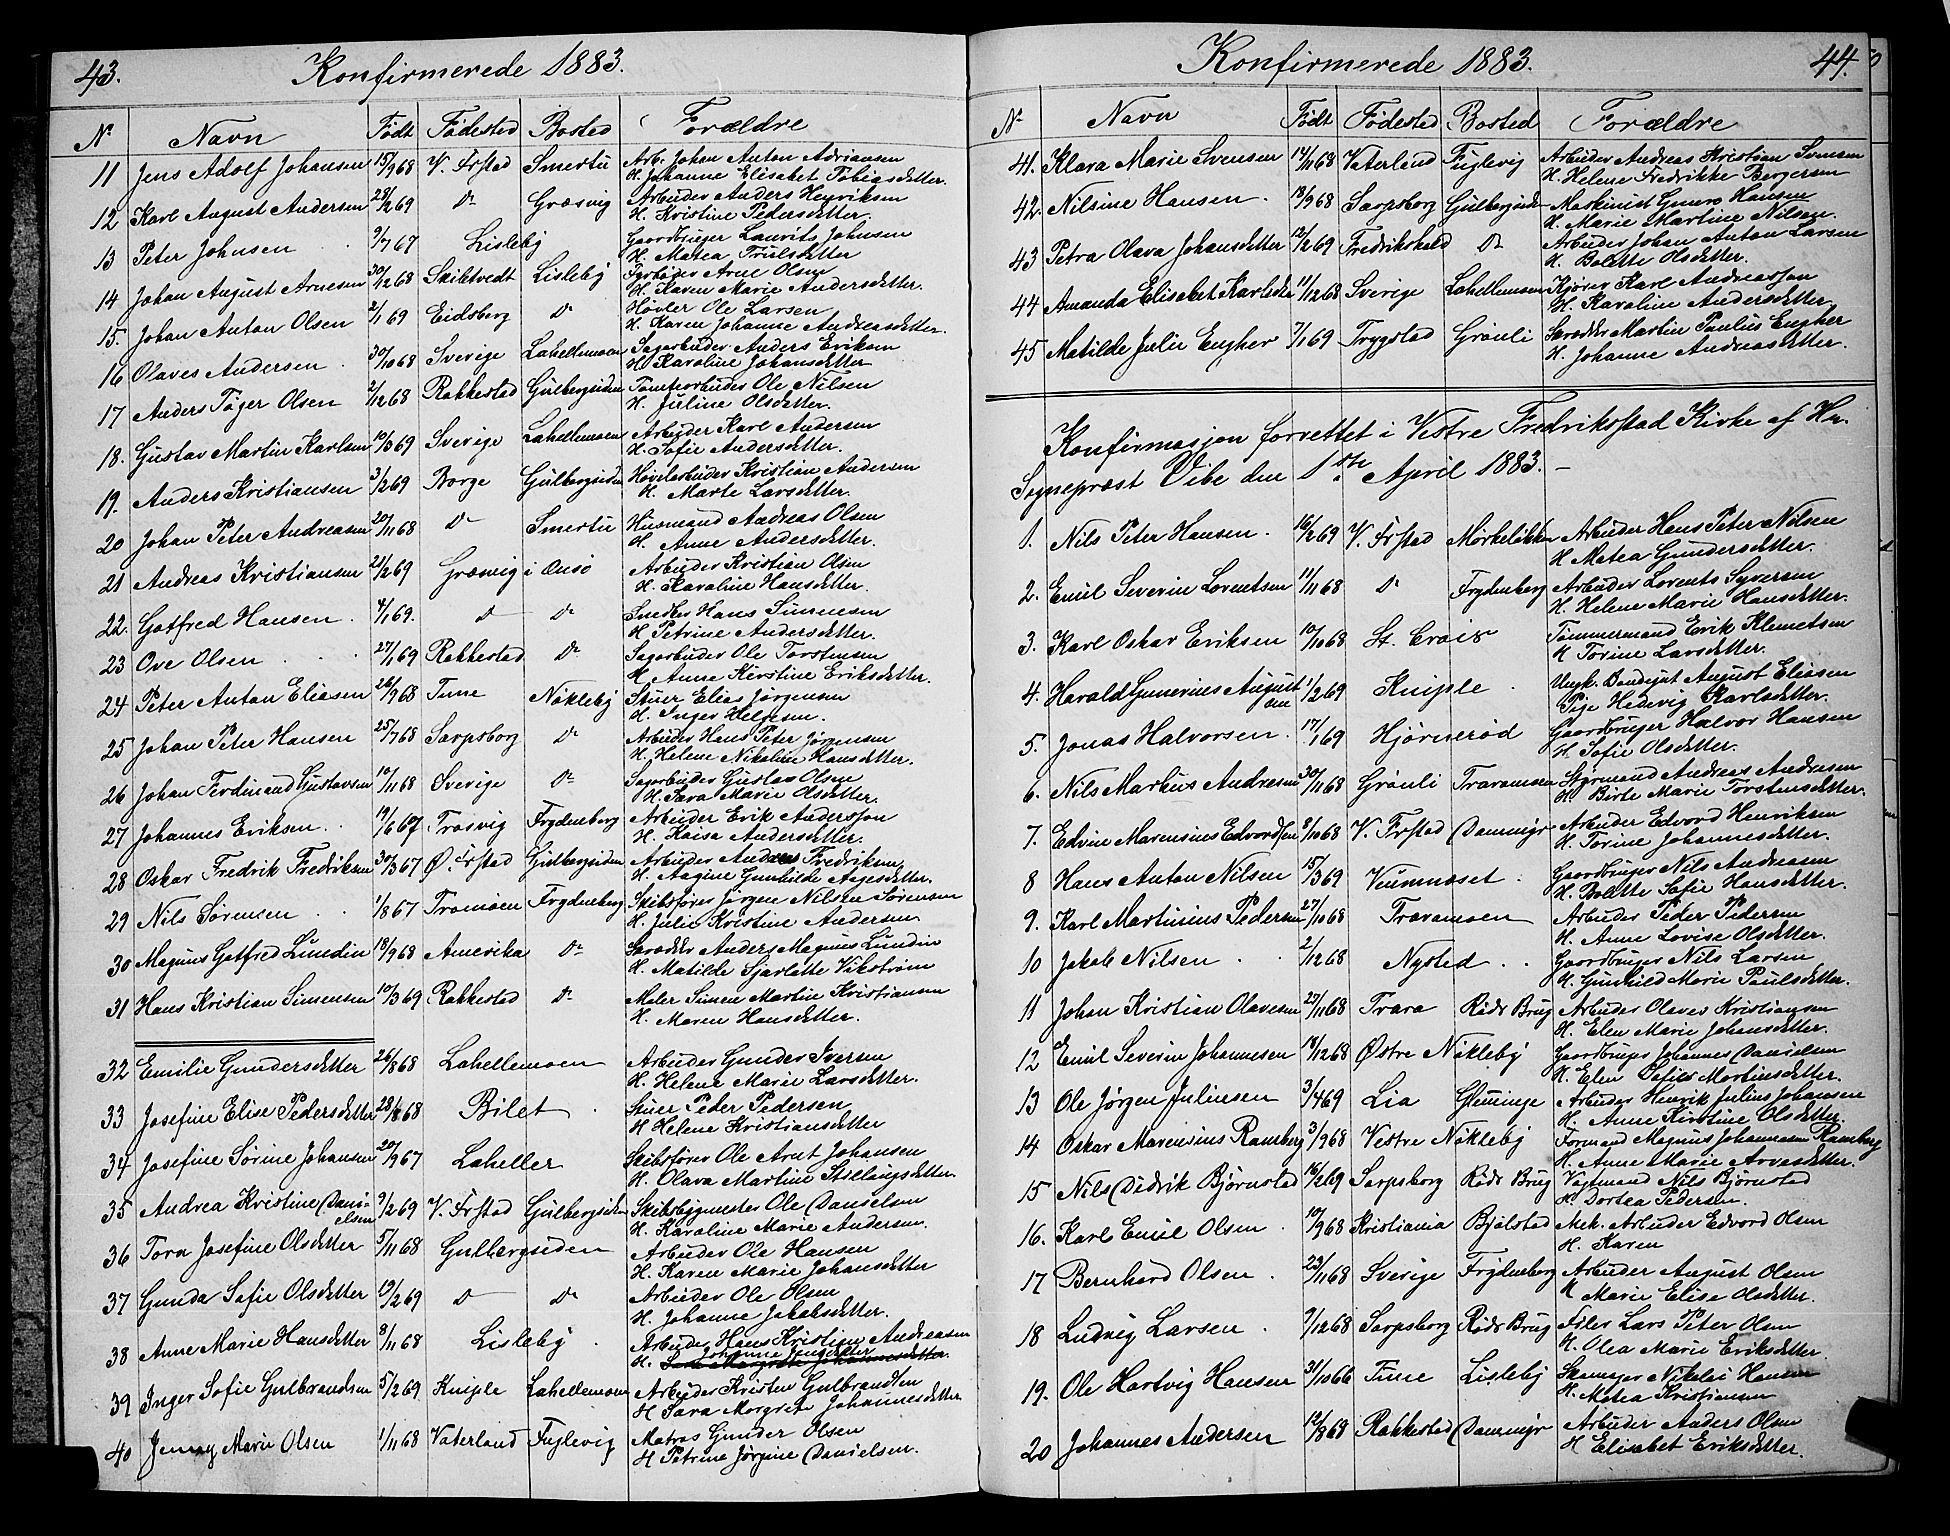 43. Konfirmerede 1883.
No Navn Født Fødested Bosted Forældre
11 Jens Adolf Johansen 15/9 68 V. Frstad Smertu Arb. Johan Anton Adriansen
H. Johanne Elisabet Tobiasdetter.
12 Karl August Andersen 28/2 69 Do Græsvig Arbuder Anders Henriksen
H. Kristine Pedersdetter.
13 Peter Johnsen 9/7 67 Lisleby Gaardbruger Laurits Johnsen
H. Matea Trulsdetter
14 Johan August Arnesen 30/12 68 Skibtvedt Lisleby Fyrbøder Arne Olsen
H. Karen Marie Andersdetter.
15. Johan Anton Olsen 2/1 69 Eidsberg Do Høvler Ole Larsen
H. Karen Johanne Andreasdetter.
16 Olaves Andersen 30/10 68 Sverige Lahellemoen Sagarbuder Anders Eriksen
H. Karoline Johansdetter
17 Anders Tøger Olsen 2/12 68 Rakkestad Gulbergsiden Tomtearbuder Ole Nilsen
H. Juline Olsdetter.
18. Gustav Martin Karlsen 10/3 69 Sverige Lahellemoen Arbuder Karl Andersen
H. Sofie Andersdetter.
19. Anders Kristiansen 3/2 69 Borge Gulbergsiden Høvlarbuder Kristian Andersen
H. Marte Larsdetter.
20 Johan Peter Andreasen 20/11 68 Do Smertu Husmand Andreas Olsen
H. Anne Andersdetter.
21 Andreas Kristiansen 21/2 69 Græsvig i Onsø Arbuder Kristian Olsen
H. Karoline Hansdetter.
22. Gotfred Hansen. 4/1 69. Do Do Snedker Hans Simensen
H Petrine Andersdetter.
23 Ove Olsen 27/1 69 Rakkestad Do Sagarbuder Ole Torstensen
H Anne Kirstine Eriksdetter.
24 Peter Anton Eliasen 26/9 68 Tune Nøkleby Stuer Elias Jørgensen
H. Inger Helgesen.
25 Johan Peter Hansen 25/7 68 Sarpsborg Do Arbuder Hans Peter Jørgensen
H. Helene Nikoline Hansdetter.
26 Johan Ferdinand Gustavsen 10/11 68 Sverige Do Sagarbuder Gustav Olsen
H. Sara Marie Olsdetter.
27 Johannes Eriksen. 19/6 67 Trosvig Frydenberg Arbuder Erik Andersson
H. Kaisa Andersdetter.
28 Oskar Fredrik Fredriksen 30/3 67 Ø. Frstad Gulbergsiden Arbuder Andreas Fredriksen
H. Aagine Gunhilde Aagesdetter.
29 Nils Sørensen 1/8 67 Tromøen Frydenberg Skibsfører Jørgen Nilsen Sørensen
H. Julie Kristine Andersen
30 Magnus Gotfred Lundin 18/9 68 Amerika Do Skrædder Anders Magnus Lundin
H. Matilde Sjarlotte Vikstrøm
31 Hans Kristian Simensen 10/3 69 Rakkestad Do Maler Simen Martin Kristiansen
H. Maren Hansdetter.
32 Emilie Gundersdetter 26/8 68 Lahellemoen Arbuder Gunder Iversen
H. Helene Marie Larsdetter.
33 Josefine Elise Pedersdetter 28/8 68 Bilet Stuer Peder Pedersen
H Helene Kristiansdetter
34 Josefine Sørine Johansen 20/9 67 Laheller Skibsfører Ole Arnt Johansen
H. Olava Martine Stillaugsdetter.
35 Andrea Kristine Dani-
elsen 9/2 69 V. Frstad Gulbergsiden Skibsbygmester Ole Danielsen
H. Karoline Marie Andersen.
36 Tora Josefine Olsdetter 5/11 68 Gulbergsiden Arbuder Ole Hansen
H. Karen Marie Johansdetter
37 Gunda Sofie Olsdetter 19/2 69 Do Do Arbuder Ole Olsen
H. Johanne Jakobsdetter.
38 Anne Marie Hansdetter 8/11 68 Lisleby Arbuder Hans Kristian Andreasen
H. Sara Margrete Johannesdetter.
39 Inger Sofie Gulbrandsen 5/2 69 Kniple Lahellemoen Arbuder Kristen Gulbrandsen
H Sara Margrete Johannesdetter
40 Jenny Marie Olsen 1/11 68 Vaterland Fuglevig Matros Gunder Olsen
H Petrine Jørgine Danielsen.
Konfirmerede 1883. 44.
No Navn Født Fødested Bosted Forældre
41. Klara Marie Svensen 14/11 68 Vaterland Fuglevig Arbuder Andreas Kristian Svensen
H. Helene Fredrikke Bergersen
42. Nilsine Hansen. 19/9 68 Sarpsborg Gulbergsiden Maskinist Gunero Hansen
H. Marie Martine Nilsen.
43 Petra Olava Johansdetter 12/2 69 Fredrikshald Do Arbuder Johan Anton Larsen
H. Bolette Olsdetter.
44 Amanda Elisabet Karlsdtr 11/12 68 Sverige Lahellemoen Kjører Karl Andreasson
H. Karoline Andersdetter
45 Matilde Julie Engher 7/1 69 Trygstad Grønli Skrædder Martin Paulus Engher
H. Johanne Andreasdetter.
Konfirmasjon forrettet i Vestre Fredriksstad Kirke af Hr.
Sogneprest Vibe den 1ste April 1883. —
1. Nils Peter Hansen. 16/2 69 V. Frstad Mørkeløkken Arbuder Hans Peter Nilsen
H Matea Gundersdetter.
2. Emil Severin Lorentsen 11/11 68 Do Frydenberg Arbuder Lorents Syversen
H. Helene Marie Hansdetter.
3. Karl Oskar Eriksen 10/10 68 St. Croix Tømmermand Erik Klemetsen
H Torine Larsdetter.
4. Harald Gunerius August
sen 1/2 69 Kniple Ungk. Bundijat August Eliasen
Pige Hedevig Karlsdetter.
5. Jonas Halvorsen. 17/1 69 Hjørnerød Gaardbruger Halvor Hansen
H. Sofie Olsdetter.
6. Nils Markus Andresen 30/11 68 Grønli Traramoen Styrmand Andreas Andresen
H. Birte Marie Torstensdetter.
7. Edvin Marensius Edvardsen 8/10 68 V. Frstad Dammyr Arbuder Edvard Henriksen
H. Torine Johannesdetter.
8 Hans Anton Nilsen 15/3 69 Veumneset. Gaardbruger Nils Andreasen
H. Bolette Sofie Hansdetter.
9. Karl Martinius Pedersen 27/10 68 Traramoen Arbuder Peder Pedersen
H. Anne Lovise Olsdetter.
10 Jakob Nilsen 2/12 68 Nysted Gaardbruger Nils Larsen
H. Gunhild Marie Paulsdetter.
11 Johan Kristian Olavesen 23/11 68 Trara Røds Brug Arbuder Olaves Kristiansen
H. Elen Marie Johansdetter.
12 Emil Severin Johannesen 18/12 68 Østre Nøkleby Gaardbruger Johannes Danielsen
H. Elen Sofie Martinsdetter.
13 Ole Jørgen Juliusen 3/4 69 Lia Glemminge Arbuder Henrik Julius Johansen
H. Anne Kirstine Olsdetter
14 Oskar Marensius Ramberg 3/9 68 Vestre Nøkleby Formand Magnus Johannesen Ramberg
H. Anne Marie Arvesdetter.
15 Nils Didrik Bjørnstad 16/2 69 Sarpsborg Røds Brug Vagtmand Nils Bjørnstad
H. Dortea Pedersen.
16. Karl Emil Olsen 10/9 68 Kristiania Bjølstad Mek. Arbuder Edvard Olsen
H. Karen
17 Bernhard Olsen. 23/11 68 Sverige Frydenberg Arbuder August Olsen
H Marie Elise Olsdetter.
18 Ludvig Larsen. 9/12 68 Sarpsborg Røds Brug Filer Lars Peter Olsen
H. Olea Marie Eriksdetter
19. Ole Hartvig Hansen 31/10 66 Tune Lisleby Skomager Nikolai Hansen
H. Matea Kristiansen
20 Johannes Andersen 12/8 68 Rakkestad Dammyr Arbuder Anders Olsen
H Elisabet Eriksdetter.